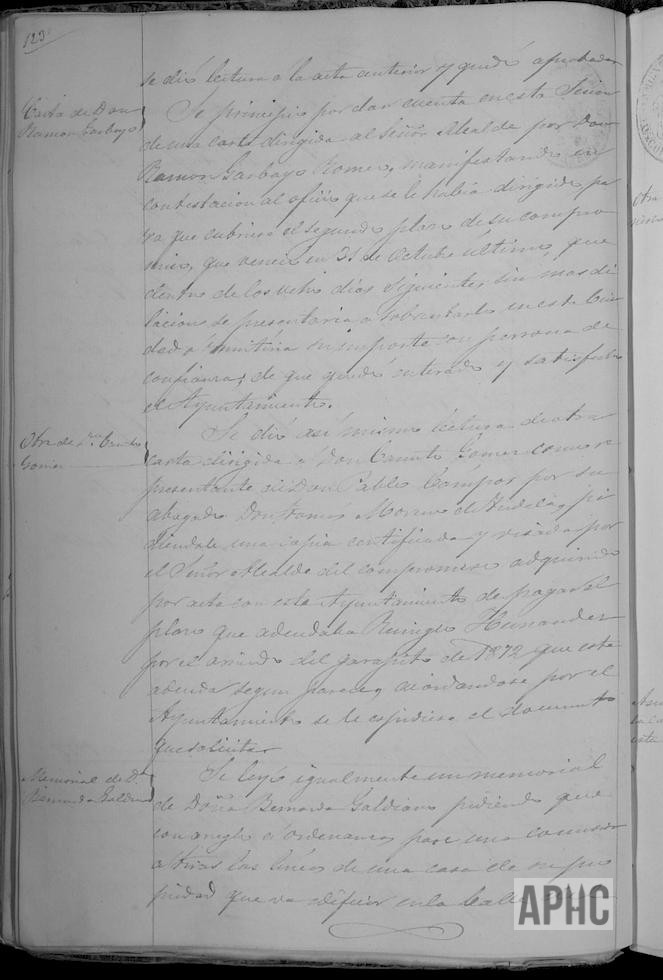 123
se dió lectura a la acta anterior y quedó aprobada
Carta de Don
Ramon Garbayo
Se principio por dar cuenta en esta Sesion
de una carta dirigida al Señor Alcalde por Don
Ramon Garbayo Romeo, manifestando en
contestacion al oficio que se le habia dirigido pa
ra que cubriera el segundo plazo de su compro
miso, que venció en 31 de Octubre último, que
dentro de los ocho dias siguientes sin mas di
laciones se presentaria a solventarlo en esta Ciu
dad o remitiria su importe con persona de
confianza; de que quedó enterado y satisfecho
el Ayuntamiento.
Otra de Dn Canuto
Gomez
Se dió asi mismo lectura de otra
carta dirigida a Don Canuto Gomez como re
presentante de Don Pablo Campos por su
abogado Don Tomas Moreno de Tudela, pi
diendole una copia certificada y visada por
el Señor Alcalde del compromiso adquirido
por acta con este Ayuntamiento de pagar el
plazo que adeudaba Remigio Hernandez
por el arriendo del garapito de 1872 que este
adeuda segun parece, acordandose por el
Ayuntamiento se le espidiese el documento
que solicita.
Memorial de Da
Bernarda Galdiano
Se leyó igualmente un memorial
de Doña Bernarda Galdiano pidiendo que
con arreglo a ordenanzas pase una comision
a tirar las lineas de una casa de su pro
piedad que va a edificar en la Calle
APHC